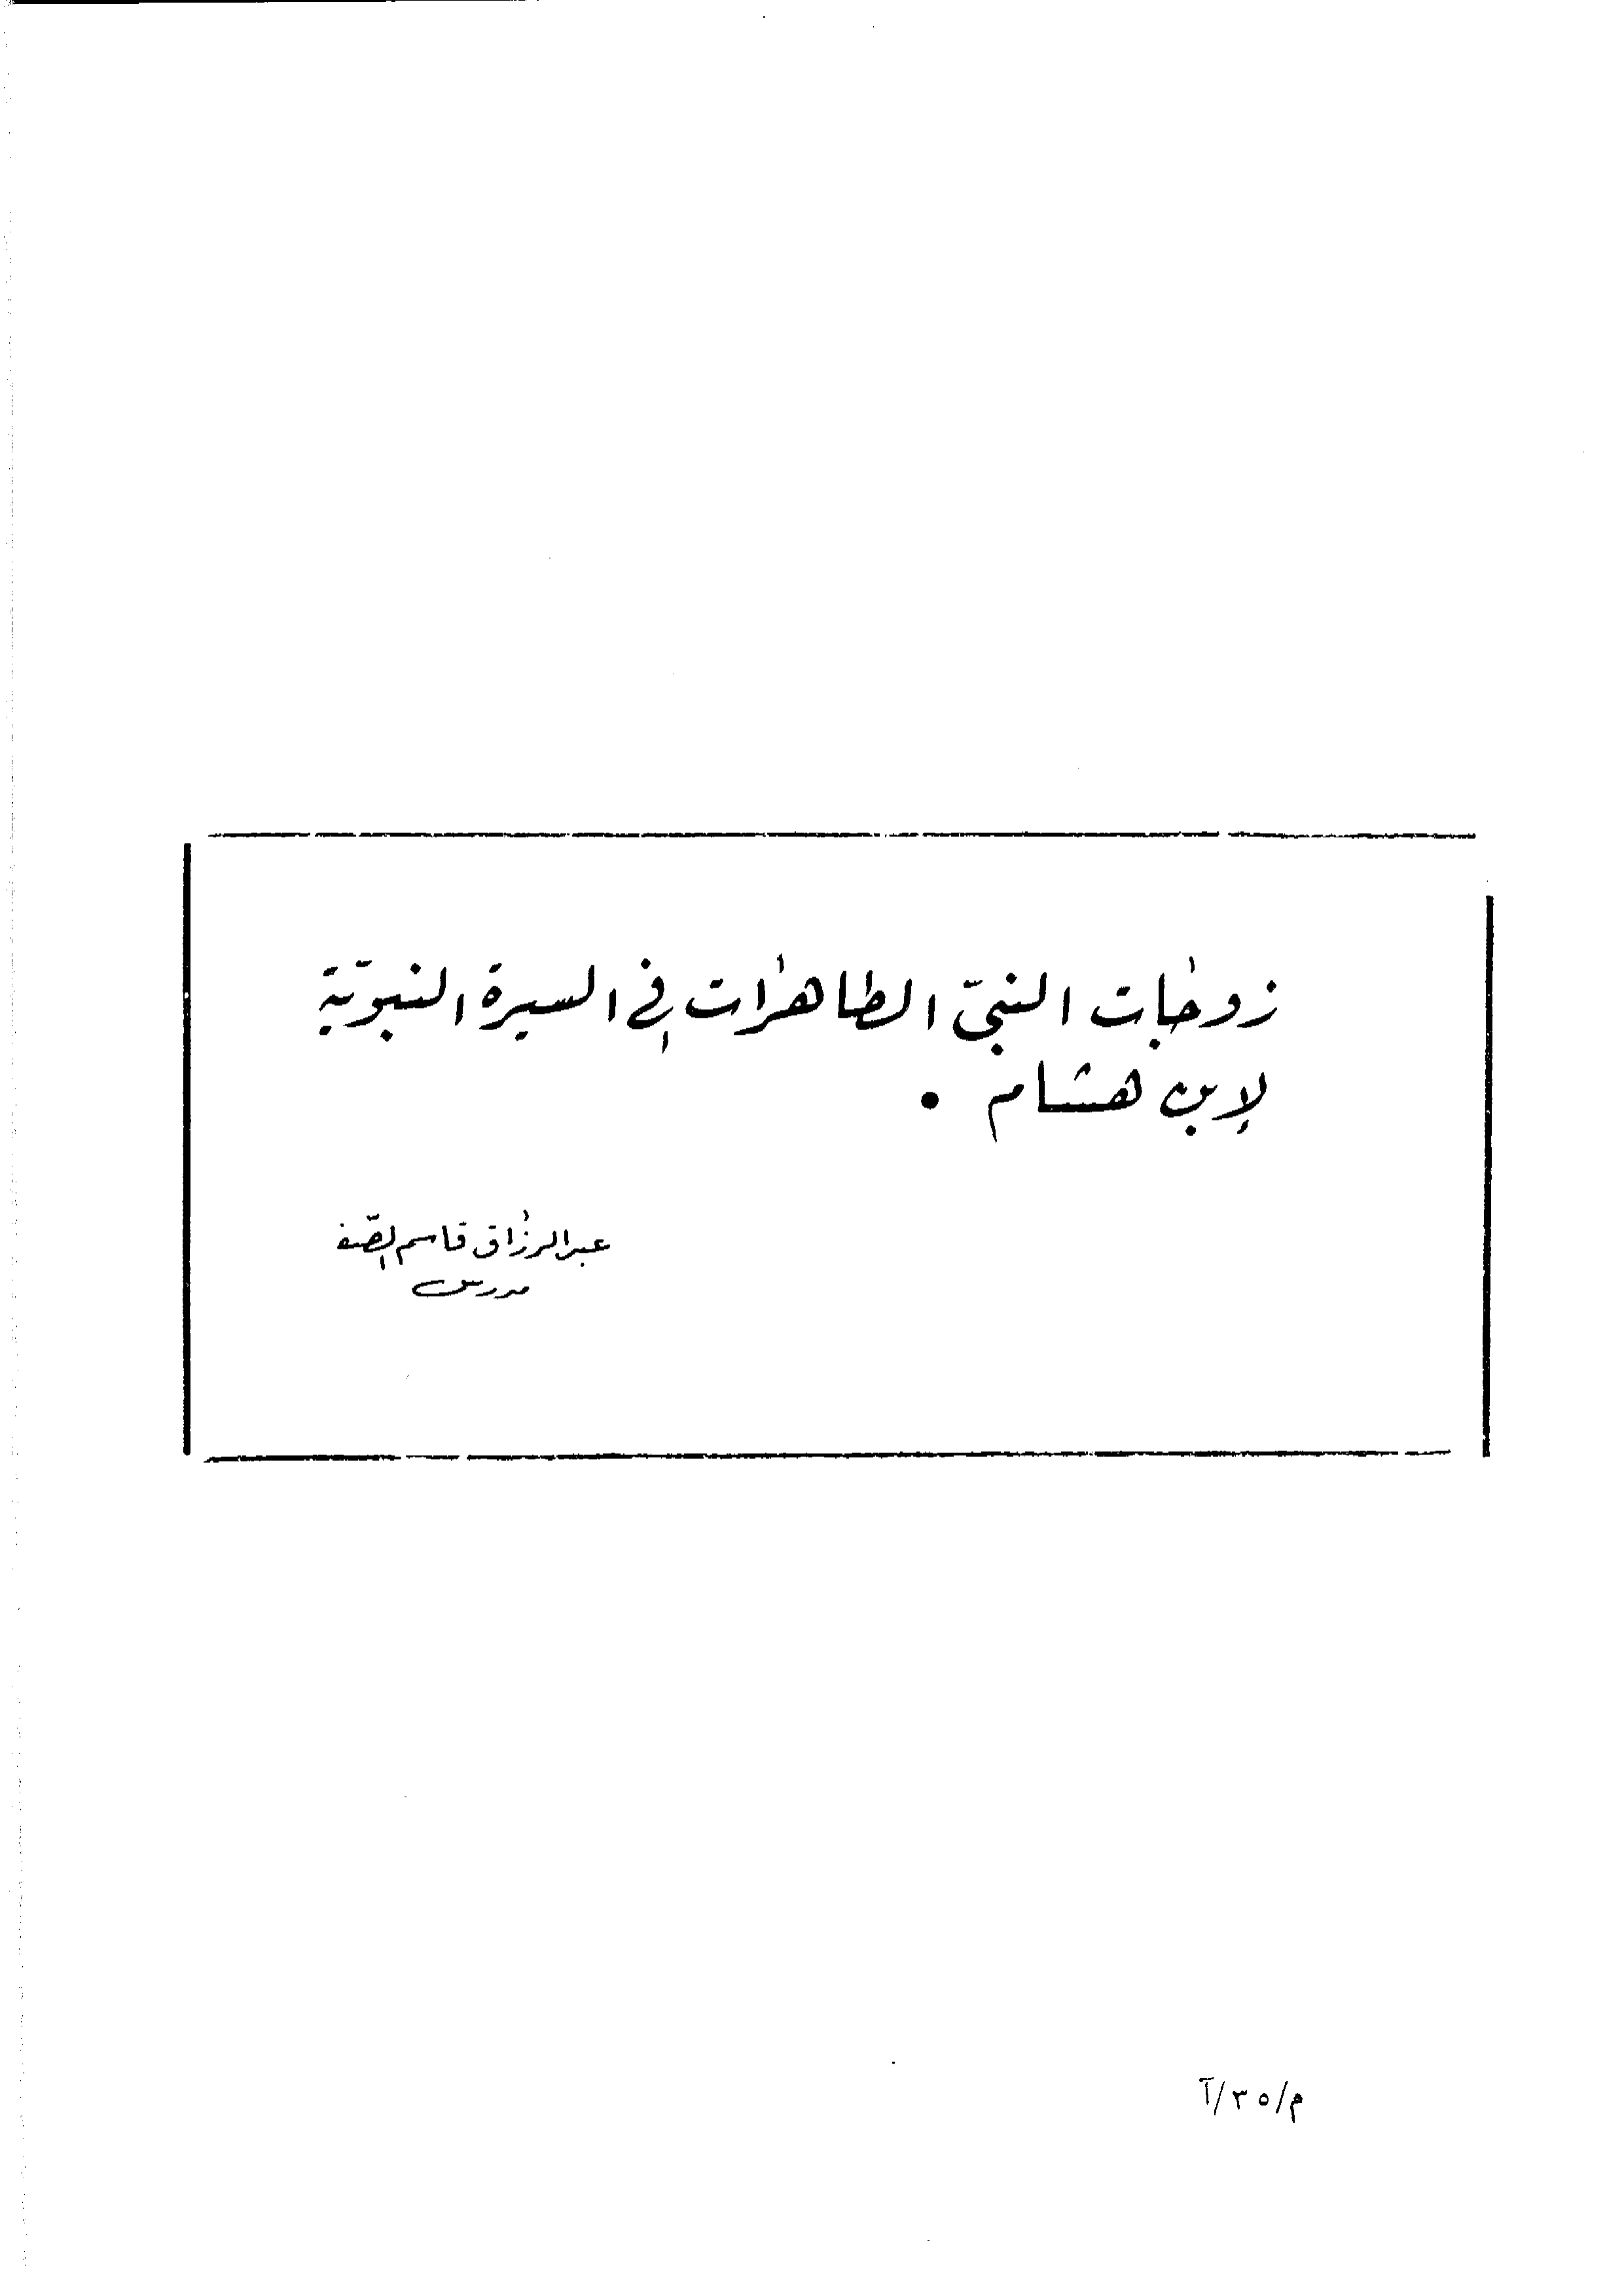 زوجات النبيّ الطاهرات في السيرة النبويّة
لإبن هشام .
عبد الرزاق قاسم الصّفـ
مدرس
م/٣٥/آ